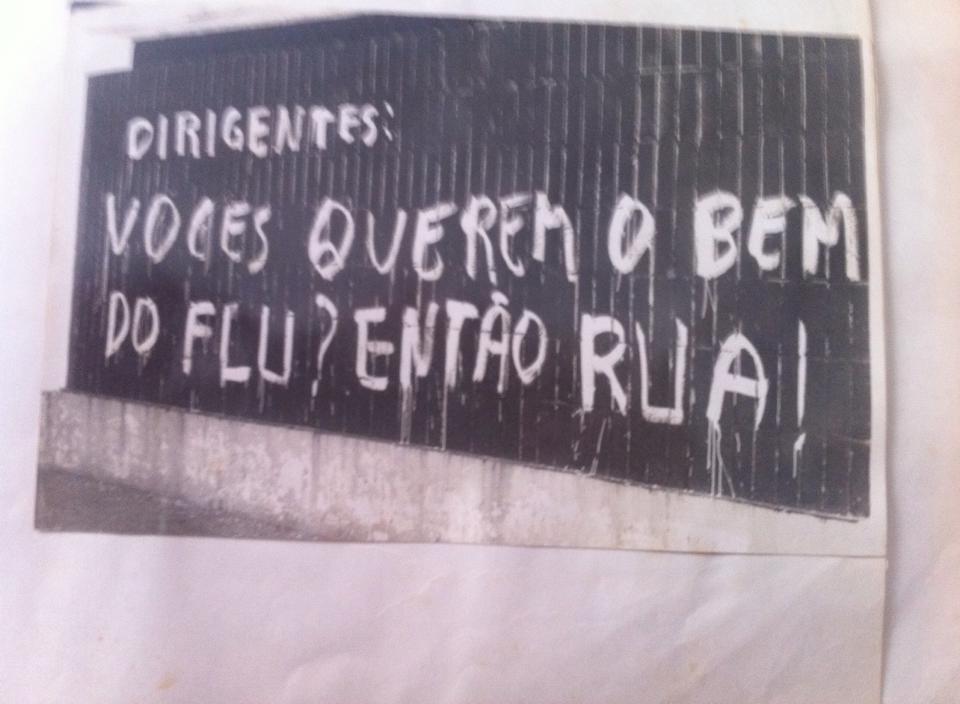 DIRIGENTES:
VOCES QUEREM O BEM
DO FLU? ENTÃO RUA!